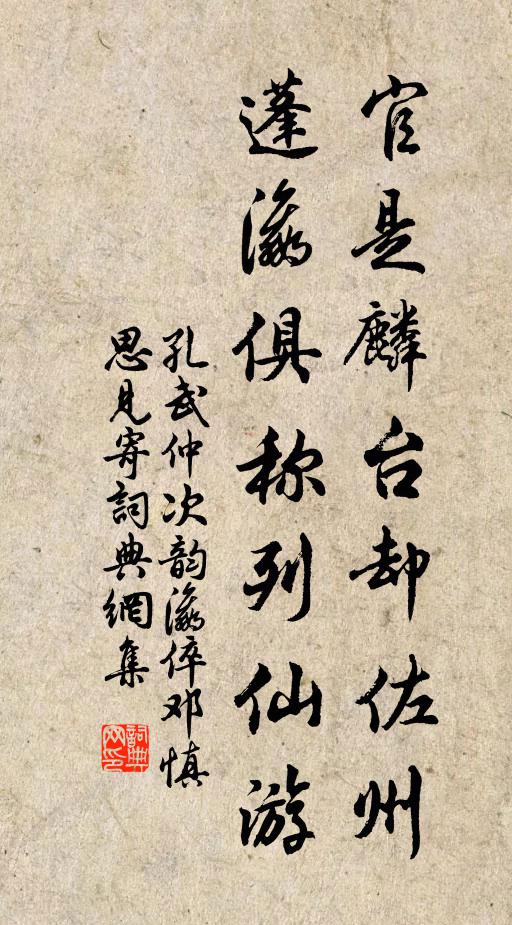 官是麟台却佐州
蓬瀛俱称列仙游
孔武仲次韵瀛倅邓慎
思见寄詞典網集
詞典網印